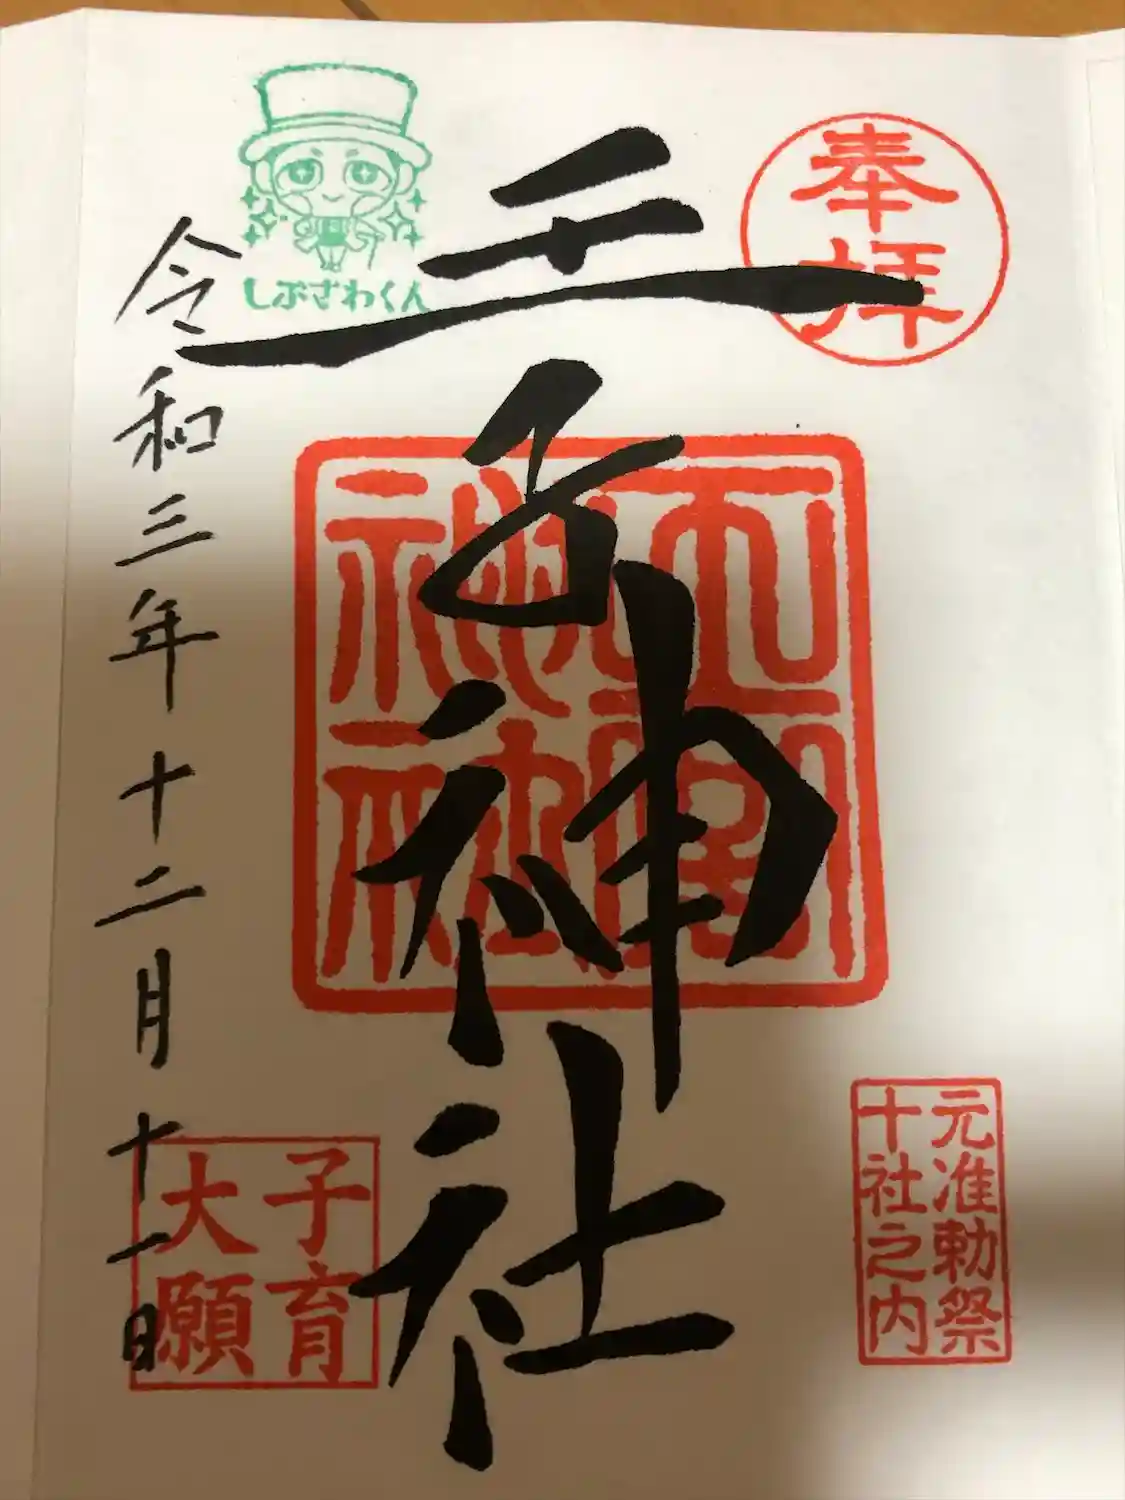 奉拝
王子神社
元准勅祭
十社之内
しぶざわくん
令和三年十二月十一日
子育
大願